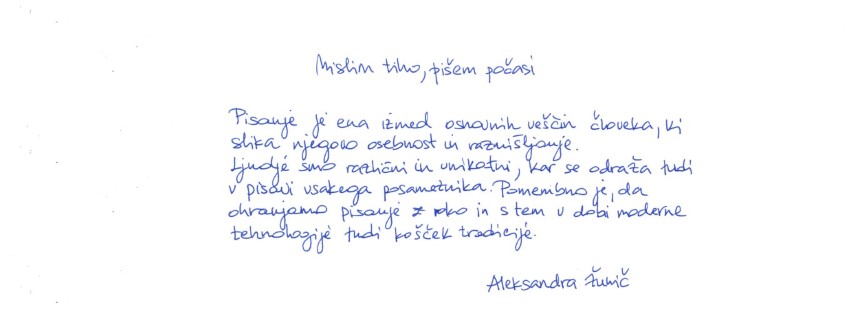 Mislim tiho, pišem počasi
Pisanje je ena izmed osnovnih veščin človeka, ki
slika njegovo osebnost in razmišljanje.
Ljudje smo različni in unikatni, kar se odraža tudi
v pisavi vsakega posameznika. Pomembno je, da
ohranjamo pisanje z roko in s tem v dobi moderne
tehnologije tudi košček tradicije.
Aleksandra